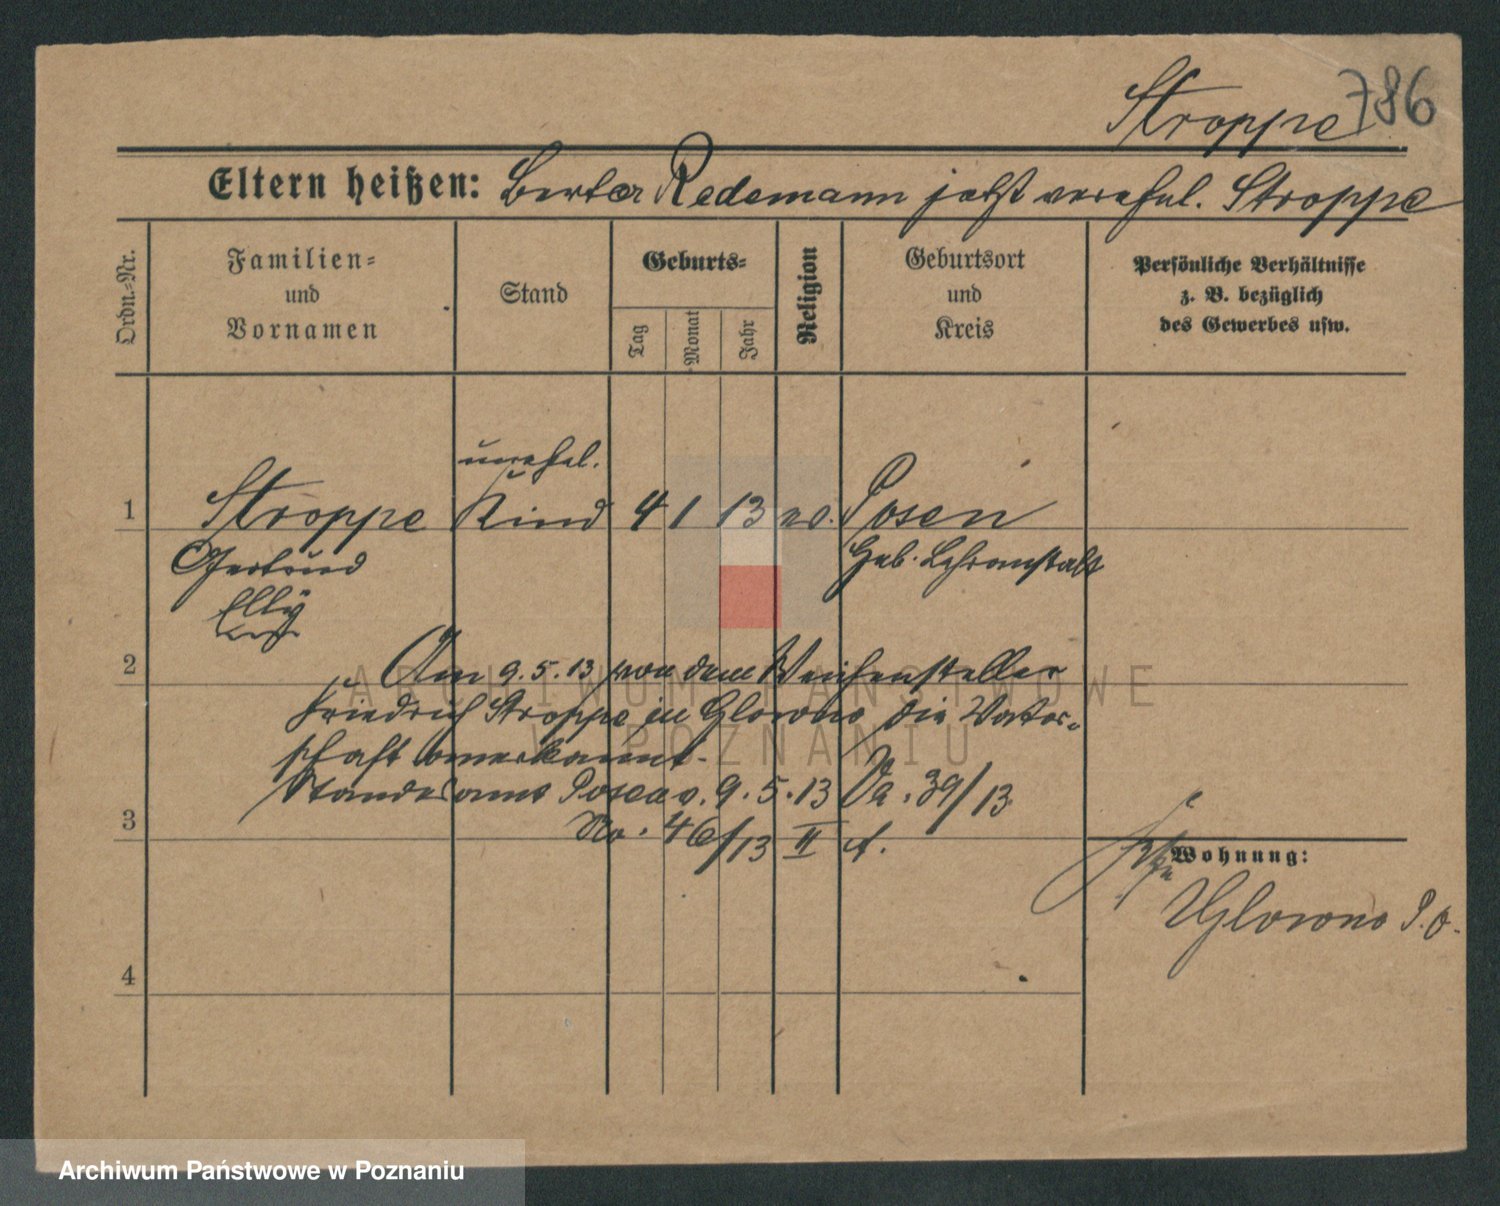 Stroppe 786
Eltern heißen: Berta Redemann jetzt verehel. Stroppe
Ordn.-Nr.
Familien- und Vornamen
Stand
Geburts-
Tag
Monat
Jahr
Religion
Geburtsort und Kreis
Persönliche Verhältnisse z. B. bezüglich des Gewerbes usw.
unehel.
1 Stroppe Kind 4 1 13 ev. Posen
Gertrud Heb. Lehranstalt
Elly
2 Am 9.5.13 von dem Weichensteller
Friedrich Stroppe in Glowno die Vater-
schaft anerkannt.
Standesamt Posen v. 9.5.13 Va. 39/13
3 No. 46/13 II
Wohnung:
Glowno P.O.
4
ARCHIWUM PAŃSTWOWE
W POZNANIU
Archiwum Państwowe w Poznaniu